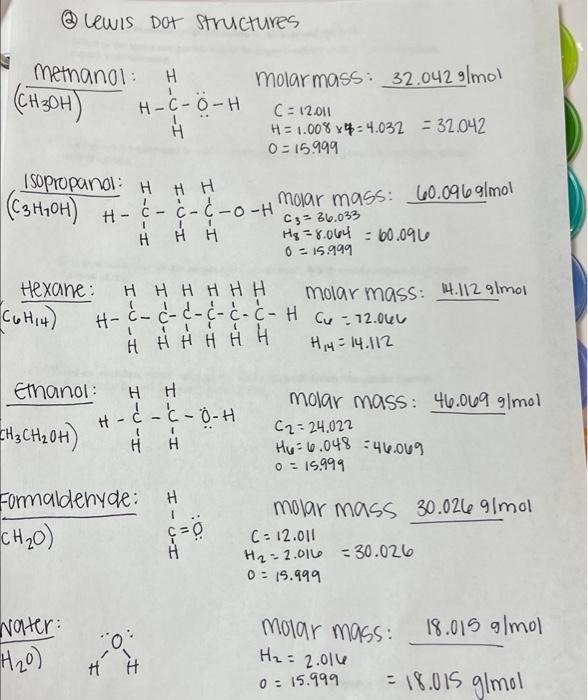 ② Lewis Dot Structures
Methanol: H molar mass: 32.042 g/mol
(CH3OH) H-C-Ö-H C = 12.011
H H = 1.008 x 4 = 4.032 = 32.042
O = 15.999
Isopropanol: H H H molar mass: 60.096 g/mol
(C3H7OH) H-C-C-C-O-H C3 = 36.033
H H H H8 = 8.064 = 60.096
O = 15.999
Hexane: H H H H H H molar mass: 14.112 g/mol
(C6H14) H-C-C-C-C-C-C-H C6 = 72.066
H H H H H H H14 = 14.112
Ethanol: H H molar mass: 46.069 g/mol
H-C-C-Ö-H C2 = 24.022
CH3CH2OH) H H H6 = 6.048 = 46.069
O = 15.999
Formaldehyde: H molar mass 30.026 g/mol
CH2O) C=O C = 12.011
H H2 = 2.016 = 30.026
O = 15.999
Water: molar mass: 18.015 g/mol
H2O) O H2 = 2.016
H H O = 15.999 = 18.015 g/mol